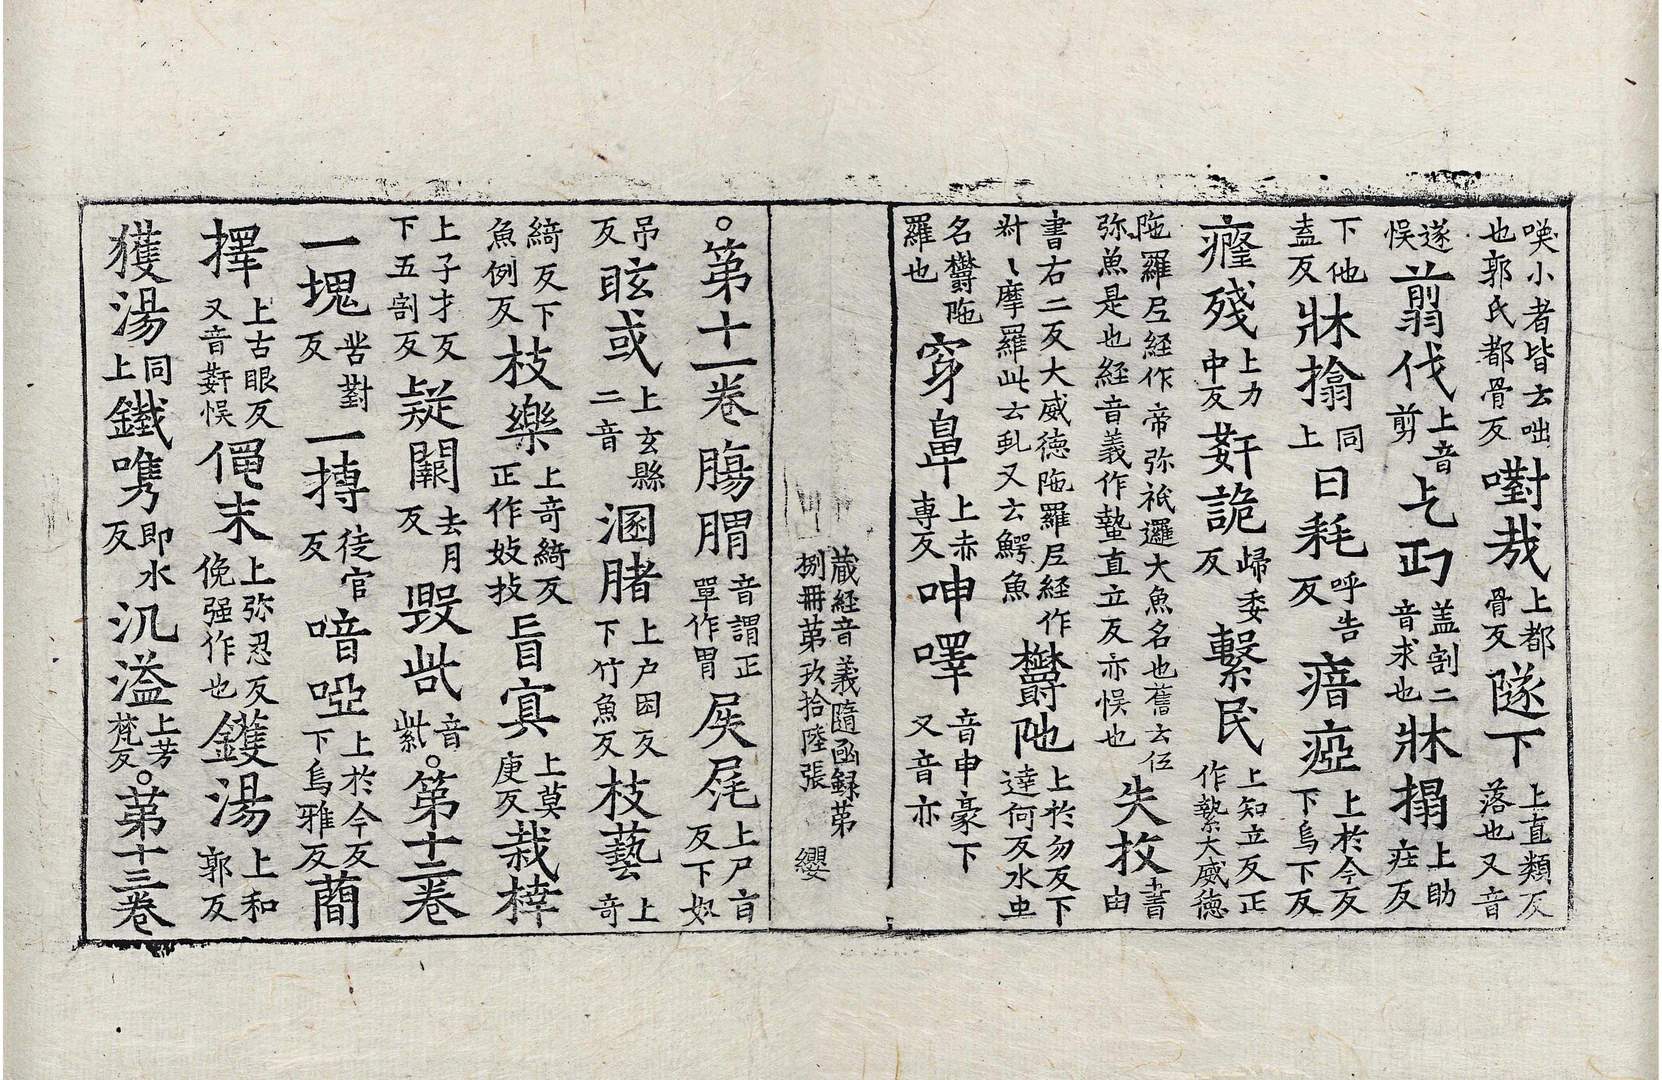 唊小者皆云咄也郭氏都骨反嚉㦲上都骨反隧下上直類反落也又音
遂悮翦伐上音剪乞丐盖割二音求也牀搨上助疰反
下他盍反牀搨同上曰耗呼告反瘖瘂上於今反下烏下反
癃殘上力中反姧詭歸委反繫民上知立反正作縶大威德
陁羅尼經作帝弥袛邏大魚名也舊云伍弥魚是也經音義作蟄直立反亦悮也失牧書由
書右二反大威德陁羅尼經作尌丶摩羅此云虬又云鰐魚欝阤上於勿反下達何反水虫
名欝陁羅也穿鼻上赤専反呻嘷音申豪下又音亦
藏經音義隨函録第捌冊第玖拾陸張 纓
。第十一卷膓䐜音謂正單作胃㞋㞙上尸旨反下奴
吊反眩或上玄縣二音溷腤上户困反下竹魚反枝藝上竒
綺反下魚例反枝樂上竒綺反正作妓技盲㝠上莫庚反栽榟
上子才反下五割反疑闕去月反毀呰音紫。第十二卷
一塊苦對反一摶徒官反喑啞上於今反下烏雅反蕳
擇上古眼反又音姧悮僶末上弥忍反俛强作也鑊湯上和郭反
獲湯同上鐵嘴即水反汎溢上芳梵反。第十三卷